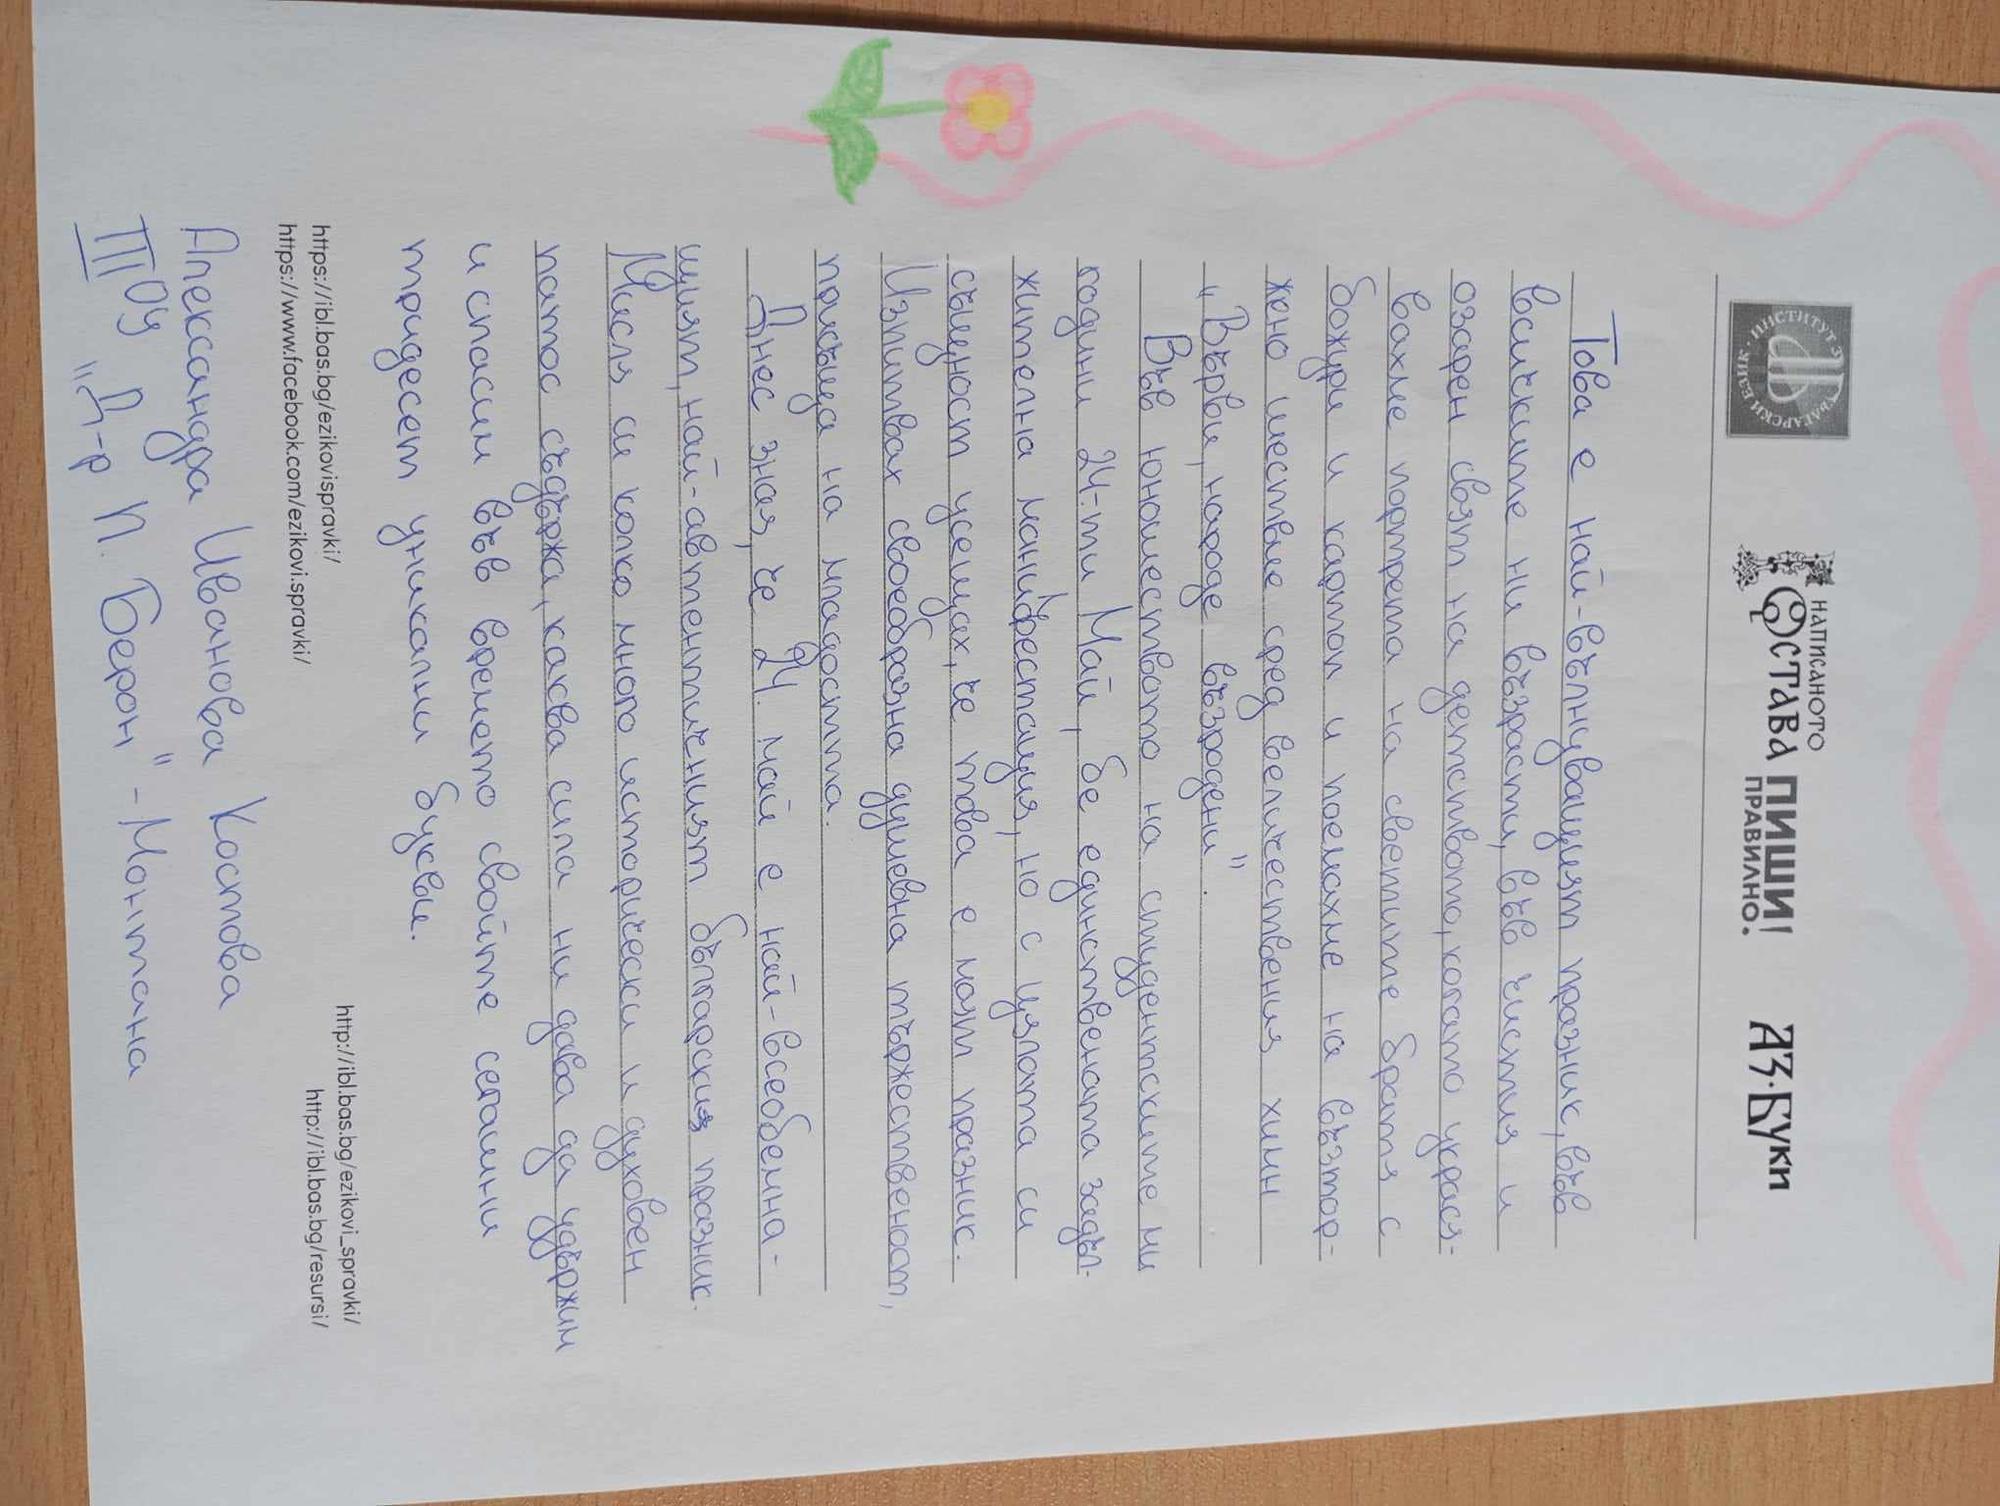 ИНСТИТУТ ЗА БЪЛГАРСКИ ЕЗИК
НАПИСАНОТО
ОСТАВА
ПИШИ!
ПРАВИЛНО!
АЗ·БУКИ
Това е най-вълнуващият празник, във
всичките ни възрасти, във чистия и
озарен свят на детството, когато украся-
вахме портрета на светите братя с
божури и картон и поемахме на възтор-
жено шествие сред величествения химн
„Върви, народе възродени".
Във юношеството на студентските ми
години 24-ти Май, бе единствената задъл-
жителна манифестация, но с цялата си
същност усещах, че това е моят празник.
Изпитвах своеобразна душевна тържественост,
присъща на младостта.
Днес зная, че 24. май е най-всеобемна-
щият, най-автентичният български празник.
Мисля си колко много исторически и духовен
патос съдържа, каква сила ни дава да удържим
и спасим във времето своите сегашни
тридесет уникални букви.
https://ibl.bas.bg/ezikovispravki/
https://www.facebook.com/ezikovi.spravki/
http://ibl.bas.bg/ezikovi_spravki/
http://ibl.bas.bg/resursi/
Александра Иванова Костова
III ОУ „Д-р П. Берон" - Монтана